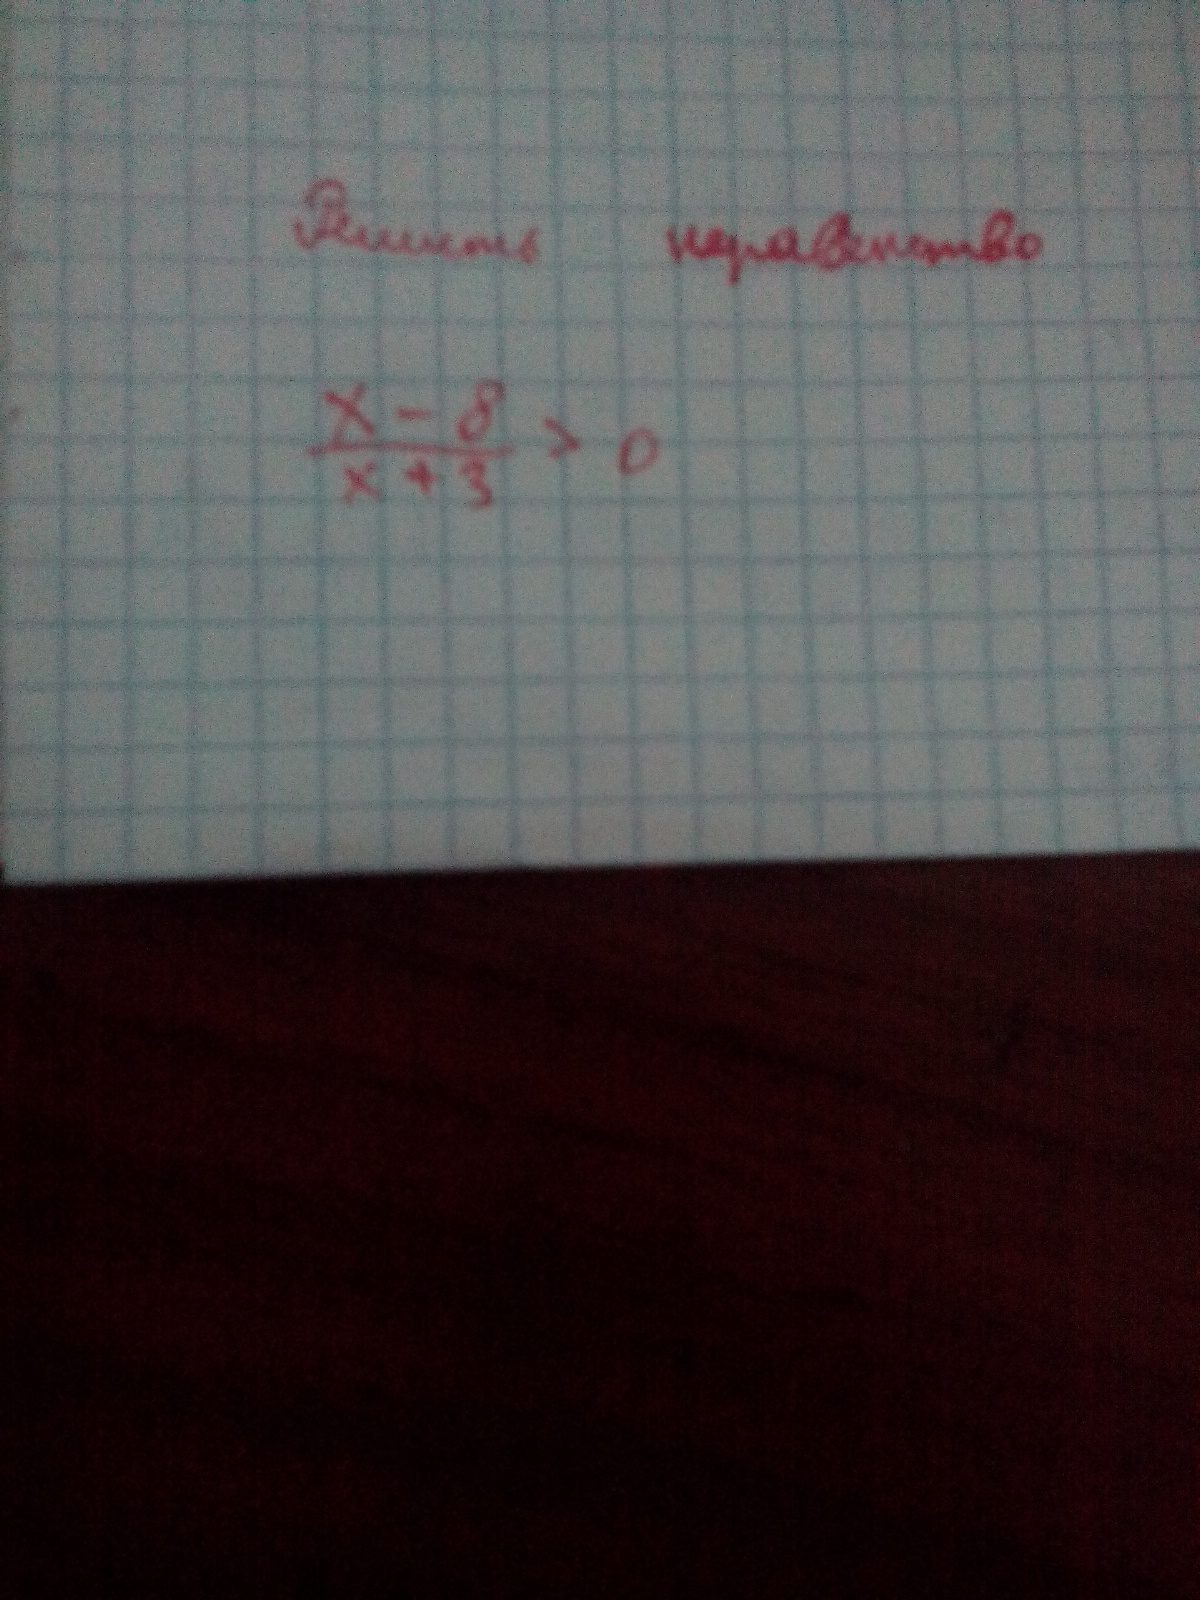 Решить неравенство
x - 8
x + 3 > 0